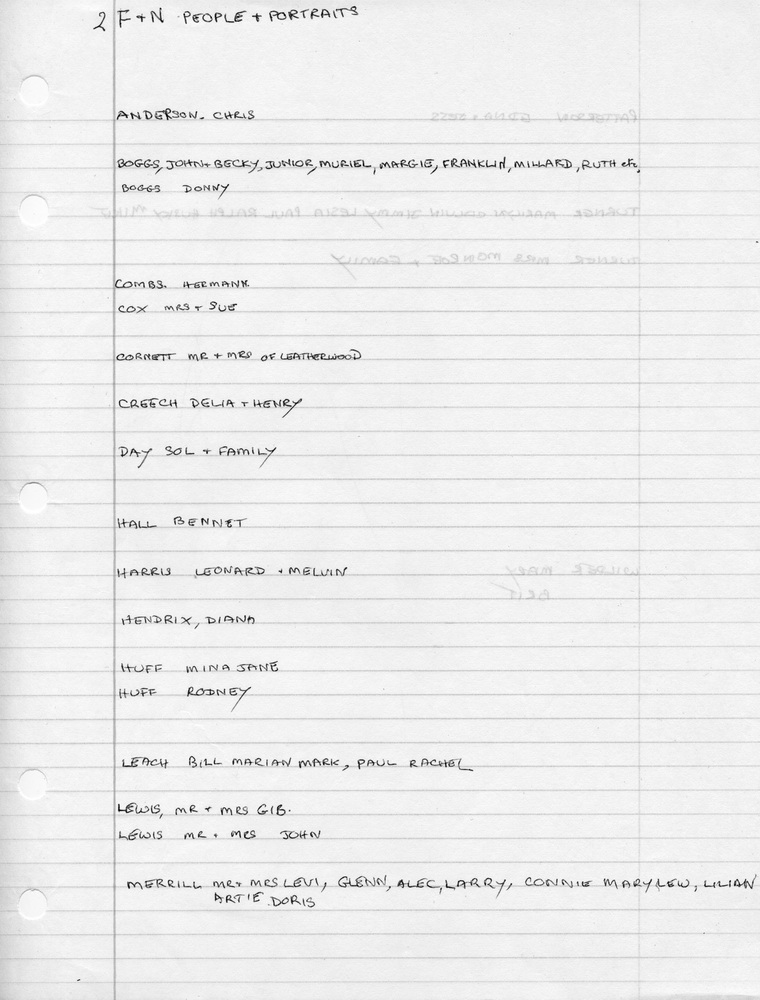 2 F+N PEOPLE + PORTRAITS
ANDERSON. CHRIS
BOGGS, JOHN + BECKY, JUNIOR, MURIEL, MARGIE, FRANKLIN, MILLARD, RUTH etc,
BOGGS DONNY
COMBS. HERMANN.
COX MRS + SUE
CORNETT MR + MRS OF LEATHERWOOD
CREECH DELIA + HENRY
DAY SOL + FAMILY
HALL BENNET
HARRIS LEONARD + MELVIN
HENDRIX, DIANA
HUFF MINA JANE
HUFF RODNEY
LEACH BILL MARIAN MARK, PAUL RACHEL
LEWIS, MR + MRS GIB.
LEWIS MR + MRS JOHN
MERRILL MR + MRS LEVI, GLENN, ALEC, LARRY, CONNIE MARY LEW, LILIAN
ARTIE DORIS